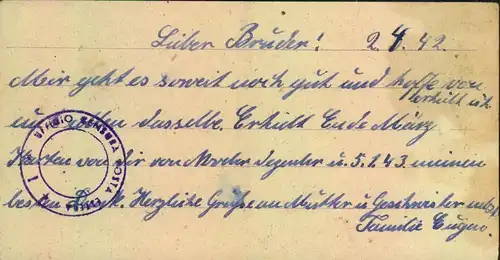 Lieber Bruder! 2.4.42.
Mir geht es soweit noch gut und hoffe von
erhielt ich
dasselbe. Erhielt Ende März
Karten von dir von Dezember u. 5.1.43. meinen
besten Herzliche Grüße an Mutter u. Geschwister
Familie Eugen
UFFICIO CENSURA POSTA